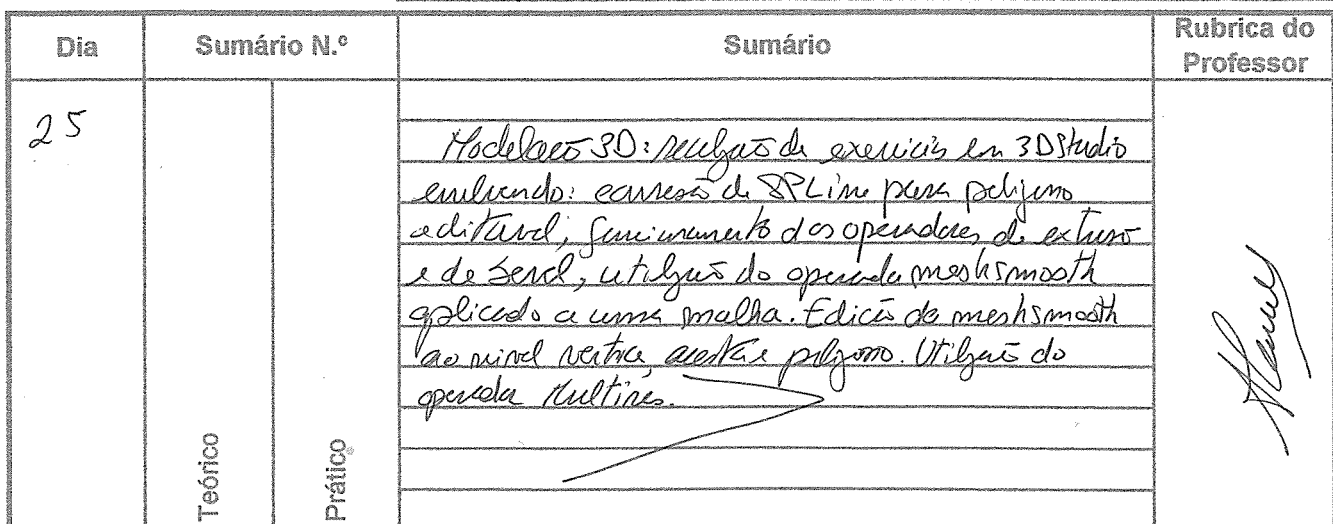 Dia Sumário N.º Sumário Rubrica do Professor
25
Modelação 3D: realização de exercícios em 3DStudio
envolvendo: conversão de SPLine para polígono
editável, funcionamento dos operadores de extrusão
e de bevel, utilização do operador meshsmooth
aplicado a uma malha. Edição do meshsmooth
ao nível vertice, aresta e polígono. Utilização do
operador Multires.
Teórico
Prático